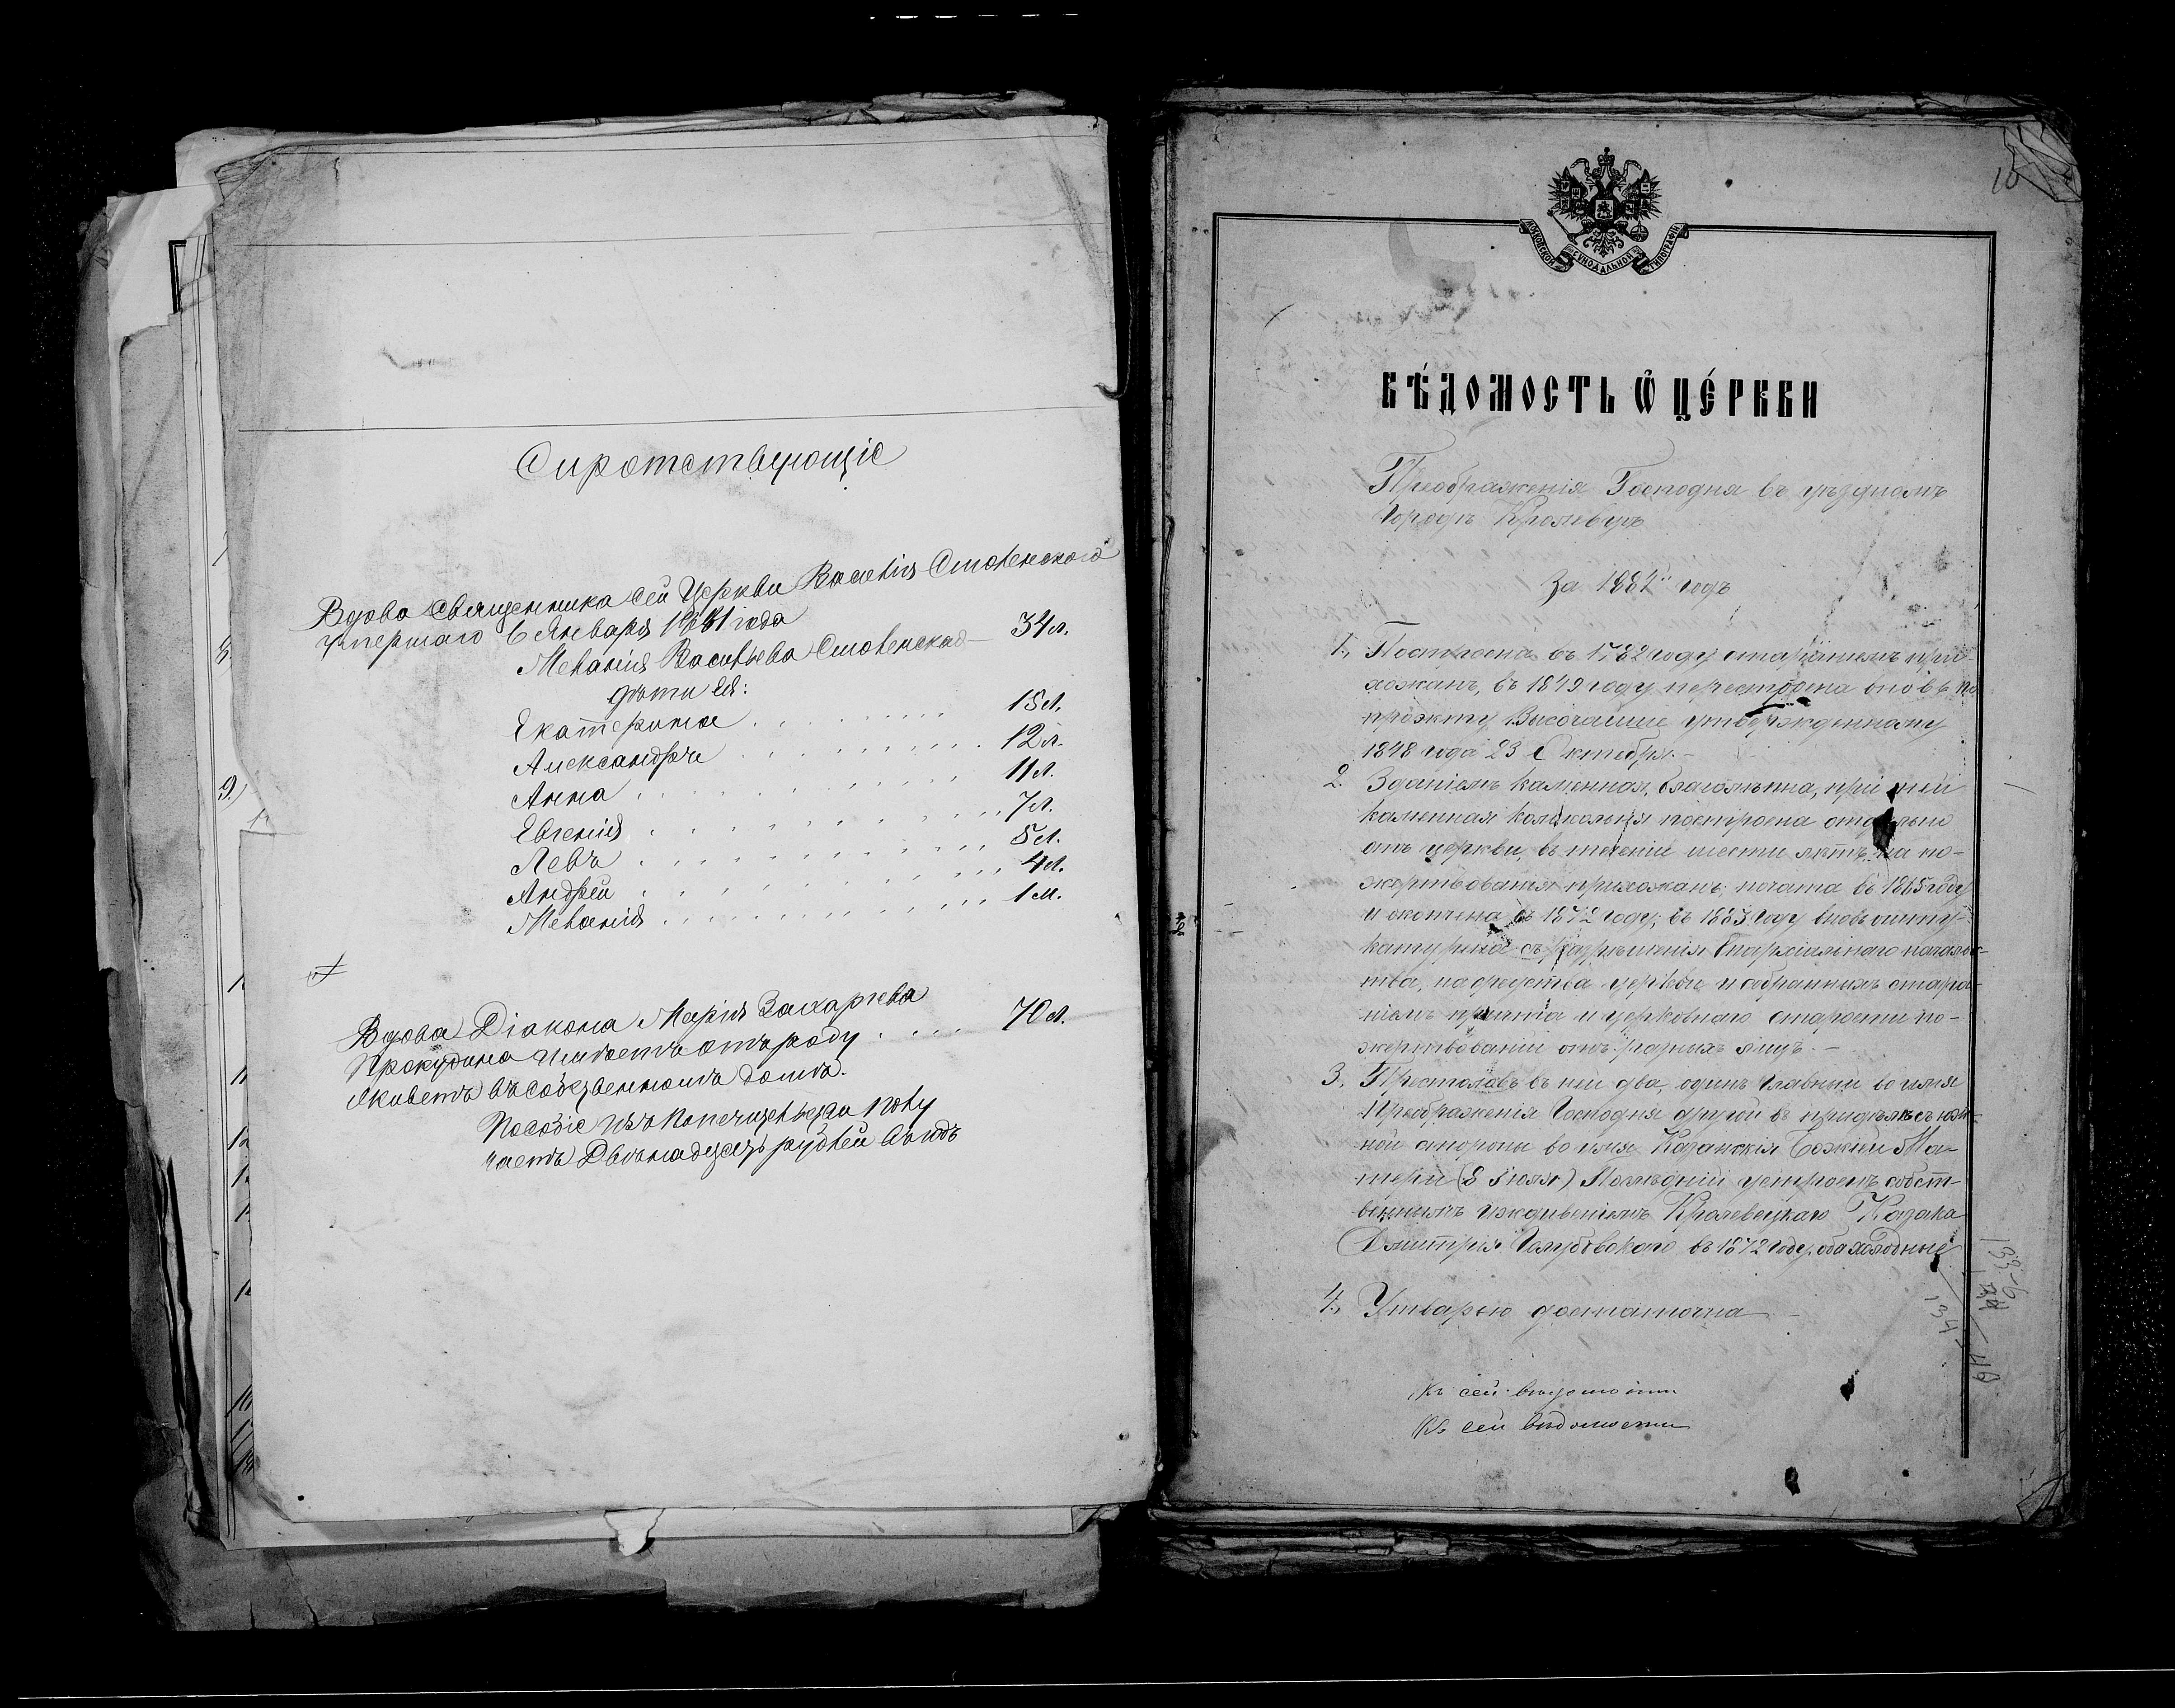 Сиротствующіе
Вдова Священника сей Церкви Василія Смоленскаго
умершаго 6 Января 1881 года
Меланія Васильева Смоленская — 34 л.
дѣти ея:
Екатерина . . . . . . . . 15 л.
Александра . . . . . . . . 12 л.
Анна . . . . . . . . 11 л.
Евгенія . . . . . . . . 7 л.
Левъ . . . . . . . . 5 л.
Андрей . . . . . . . . 4 л.
Меланія . . . . . . . . 1 м.
Вдова Діакона Марія Захаріева
Прокудина имѣетъ отъ роду . . . . 70 л.
Живетъ въ собственномъ домѣ.
Пособіе изъ Попечительства полу
чаетъ Двѣнадцать рублей въ годъ
МОСКОВСКОЙ СѴНОДАЛЬНОЙ ТИПОГРАФІИ
ВѢ́ДОМОСТЬ Ѽ ЦЕ́РКВИ
Преображенія Господня въ уѣздномъ
Городѣ Кролевцѣ
За 1887й годъ
1., Построена въ 1782 году стараніемъ при-
хожанъ, въ 1849 году перестроена вновь по
проэкту Высочайше утвержденному
1848 года 23 Октября. —
2. Зданіемъ каменная, благолѣпна, при ней
каменная колокольня построена отдѣльно
отъ церкви, въ теченіи шести лѣтъ, на по-
жертвованія прихожанъ; начата въ 1865 году
и окончена въ 1872 году; въ 1883 году вновь ошту-
катурена съ разрѣшенія Епархіальнаго началь-
тва, на средства церкви и собранныхъ стара-
ніемъ причта и церковнаго старосты по-
жертвованій отъ разныхъ лицъ. —
3. Престоловъ въ ней два, одинъ главный во имя
Преображенія Господня другой въ придѣлѣ съ юж-
ной стороны во имя Казанскія Божіей Ма-
тери (8 Іюля) Послѣдній устроенъ собст-
веннымъ иждивеніемъ Кролевецкаго Козака
Дмитрія Голубовскаго въ 1872 году, оба холодные
4., Утварью достаточна —
Къ сей вѣдомости
Къ сей вѣдомости